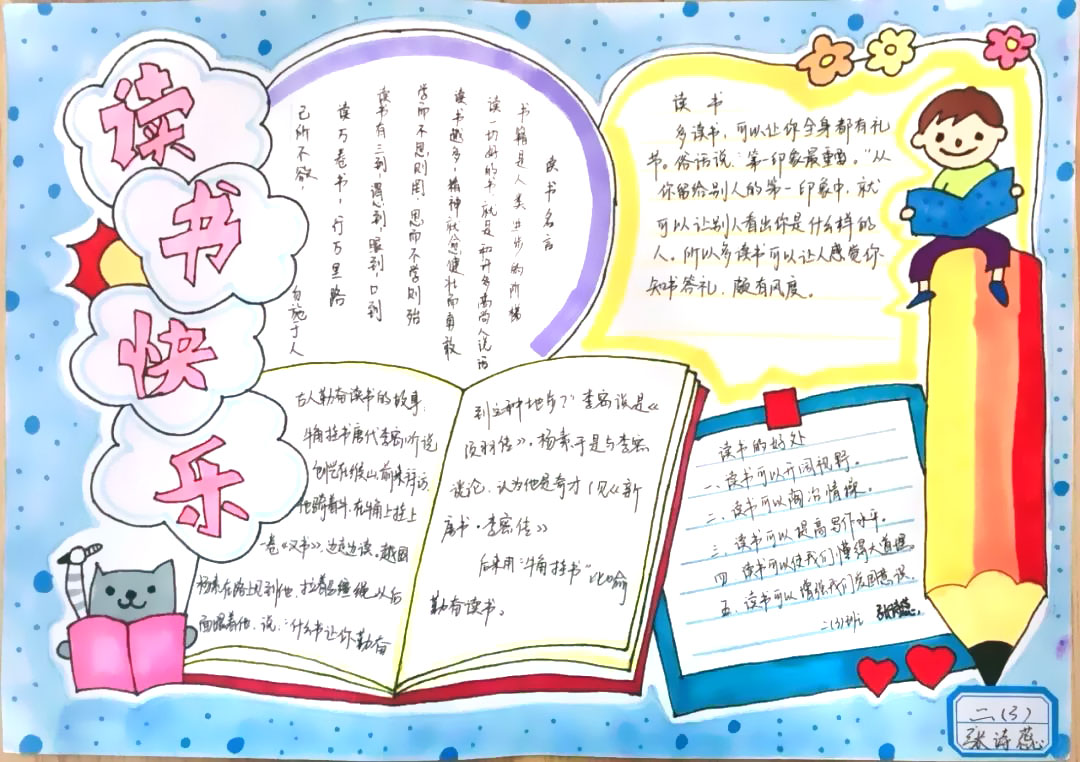 读
书
快
乐
读书名言
书籍是人类进步的阶梯
读一切好的书,就是和许多高尚人说话
读书越多,精神就愈健壮而勇敢
学而不思则罔,思而不学则殆
读书有三到,谓心到,眼到,口到
读万卷书,行万里路
己所不欲,勿施于人
读书
多读书,可以让你全身都有礼
节。俗话说:“第一印象最重要。”从
你留给别人的第一印象中,就
可以让别人看出你是什么样的
人。所以多读书可以让人感觉你
知书答礼,颇有风度。
古人勤奋读书的故事:
牛角挂书唐代李密听说
包恺在缑山,前来拜访,
他骑着牛,在牛角上挂上
一卷《汉书》,边走边读。越国
杨素在路上见到他,拉着马缰绳,从后
面跟着他,说:“什么书让你勤奋
到这种地步?”李密说是《
项羽传》,杨素于是与李密
谈论,认为他是奇才(见《新
唐书·李密传》
后来用“牛角挂书”比喻
勤奋读书。
读书的好处
一、读书可以开阔视野。
二、读书可以陶冶情操。
三、读书可以提高写作水平。
四、读书可以使我们懂得大道理。
五、读书可以增强我们爱国意识。
二(3)班: 张诗蕊
二(3)
张诗蕊